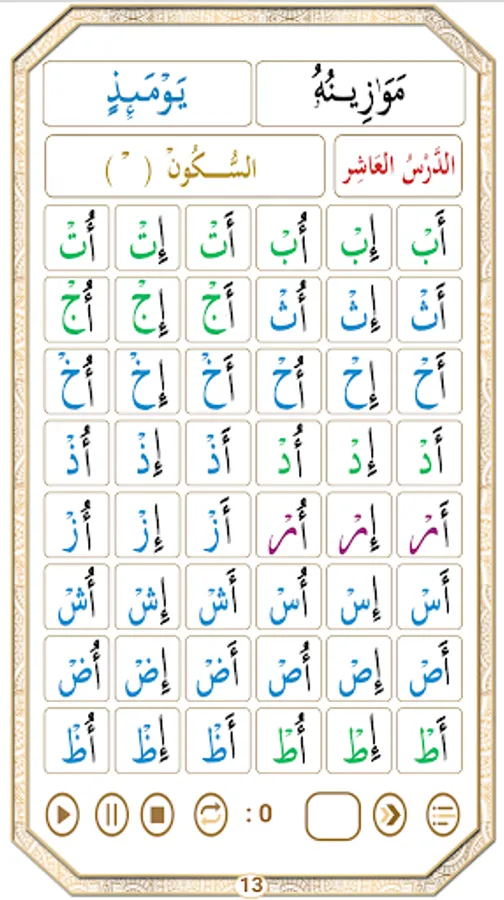 مَوَٰزِينُهُۥ يَوْمَئِذٍ
الدَّرْسُ العَاشِر السُّـكُونْ ( ْ )
أَبْ إِبْ أُبْ أَتْ إِتْ أُتْ
أَثْ إِثْ أُثْ أَجْ إِجْ أُجْ
أَحْ إِحْ أُحْ أَخْ إِخْ أُخْ
أَدْ إِدْ أُدْ أَذْ إِذْ أُذْ
أَرْ إِرْ أُرْ أَزْ إِزْ أُزْ
أَسْ إِسْ أُسْ أَشْ إِشْ أُشْ
أَصْ إِصْ أُصْ أَضْ إِضْ أُضْ
أَطْ إِطْ أُطْ أَظْ إِظْ أُظْ
: 0
13